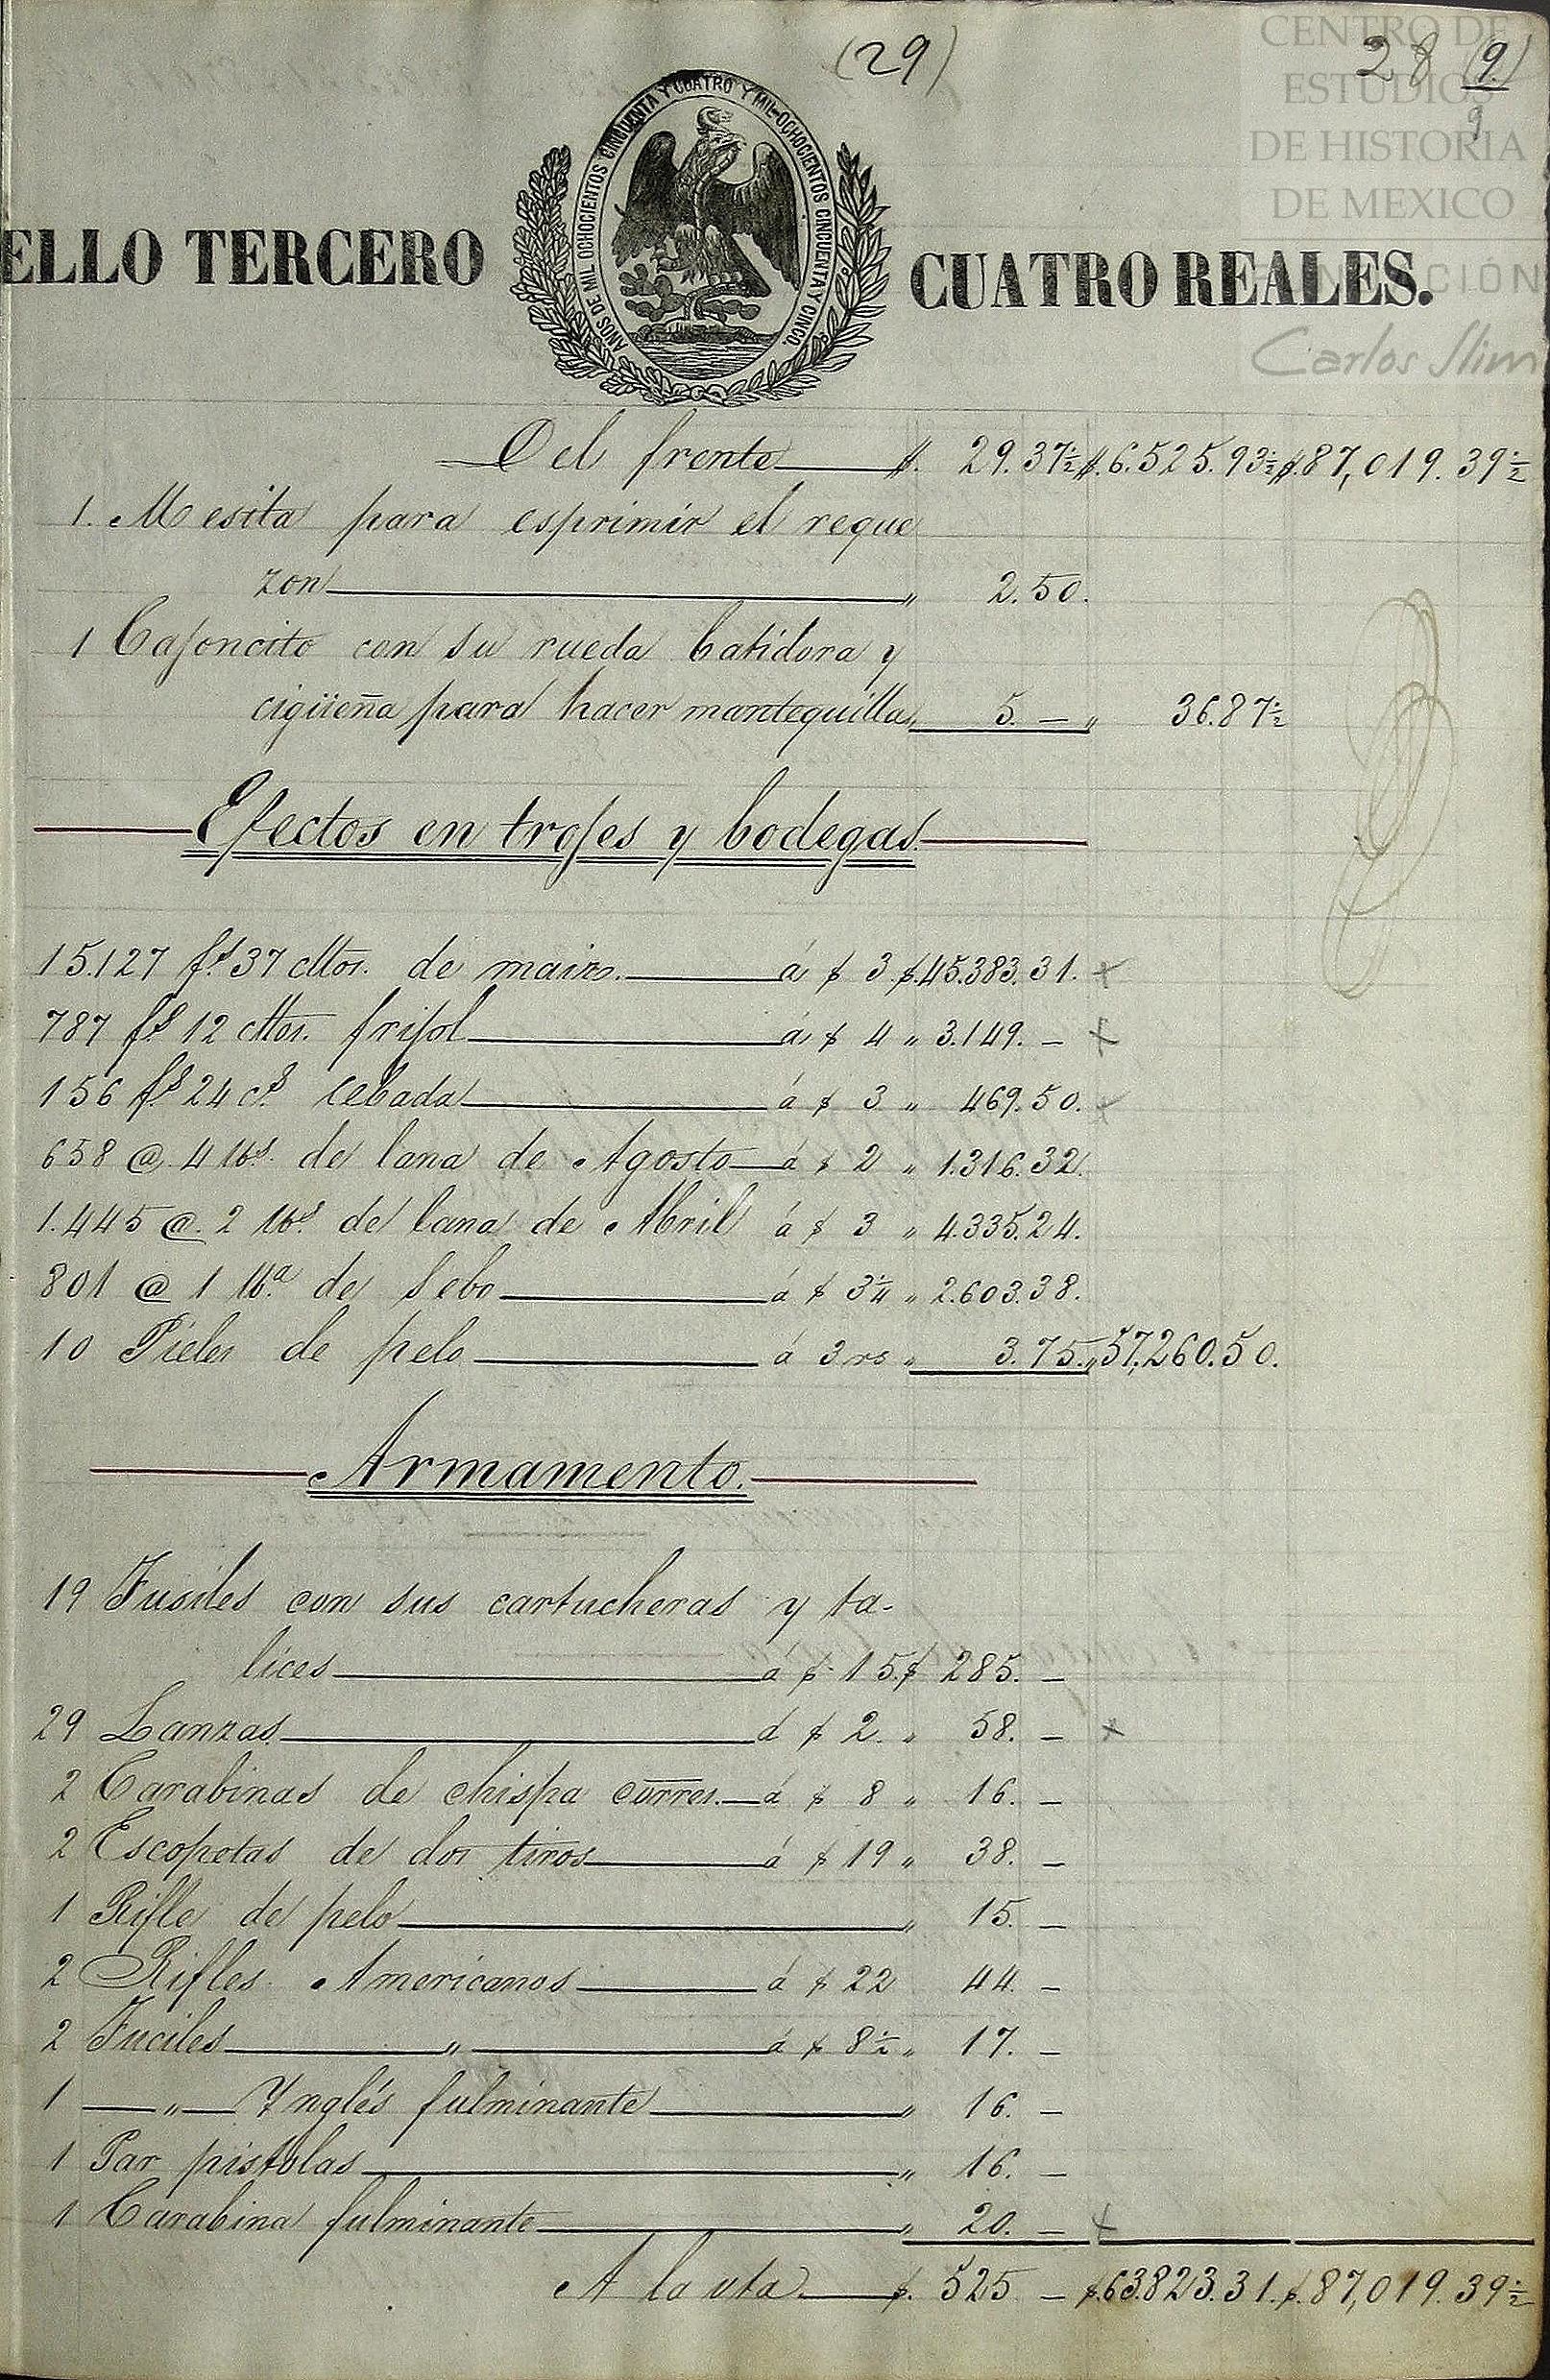 (29)
28 (9.)
9
CENTRO DE
ESTUDIOS
DE HISTORIA
DE MEXICO
FUNDACIÓN
Carlos Slim
AÑOS DE MIL OCHOCIENTOS CINCUENTA Y CUATRO Y MIL OCHOCIENTOS CINCUENTA Y CINCO.
ELLO TERCERO CUATRO REALES.
Del frente $. 29.37½ $.6.525.93½ $.87,019.39½
1. Mesita para esprimir el reque
zon " 2.50.
1 Cajoncito con su rueda batidora y
cigüeña para hacer mantequilla " 5. — " 36.87½
Efectos en trojes y bodegas.
15.127 f.s 37 cttos. de maiz. á $ 3 $.45.383.31. x
787 f.s 12 cttos. frijol á $ 4 " 3.149. — x
156 f.s 24 c.s cebada á $ 3 " 469.50. x
658 @ 4 lb.s de lana de Agosto á $ 2 " 1.316.32.
1.445 @. 2 lb.s de lana de Abril á $ 3 " 4.335.24.
801 @ 1 lb.a de sebo á $ 3¼ " 2.603.38.
10 Pieles de pelo á 3 rs " 3.75. " 57,260.50.
Armamento.
19 Fusiles con sus cartucheras y ta-
lices á $. 15. $ 285. —
29 Lanzas á $ 2. " 58. — x
2 Carabinas de chispa corres. á $ 8 " 16. —
2 Escopetas de dos tiros á $ 19 " 38. —
1 Rifle de pelo " 15. —
2 Rifles Americanos á $ 22 44. —
2 Fuciles " á $ 8½ " 17. —
1 — " — Ynglés fulminante " 16. —
1 Par pistolas " 16. —
1 Carabina fulminante " 20. — x
A la vta $. 525 — $.63.823.31. $.87,019.39½